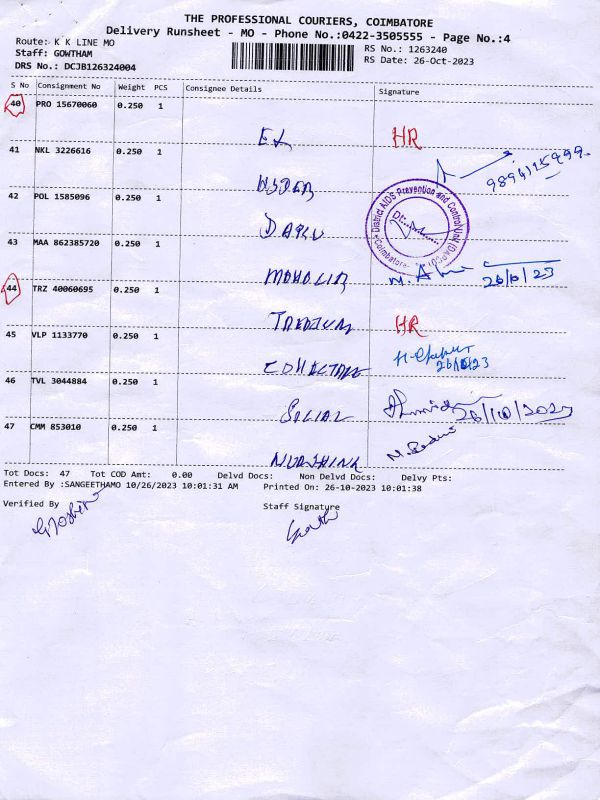 THE PROFESSIONAL COURIERS, COIMBATORE
Delivery Runsheet - MO - Phone No.:0422-3505555 - Page No.:4
Route:- K K LINE MO
RS No.: 1263240
Staff: GOWTHAM
RS Date: 26-Oct-2023
DRS No.: DCJB126324004
S No Consignment No Weight PCS Consignee Details Signature
40 PRO 15670060 0.250 1
HR
41 NKL 3226616 0.250 1
42 POL 1585096 0.250 1
District AIDS Prevention and Control Unit
Coimbatore
43 MAA 862385720 0.250 1
26/10/23
44 TRZ 40060695 0.250 1
HR
45 VLP 1133770 0.250 1
26/10/23
46 TVL 3044884 0.250 1
SOCIAL
26/10/2023
47 CMM 853010 0.250 1
Tot Docs: 47 Tot COD Amt: 0.00 Delvd Docs: Non Delvd Docs: Delvy Pts:
Entered By :SANGEETHAMO 10/26/2023 10:01:31 AM Printed On: 26-10-2023 10:01:38
Verified By
Staff Signature